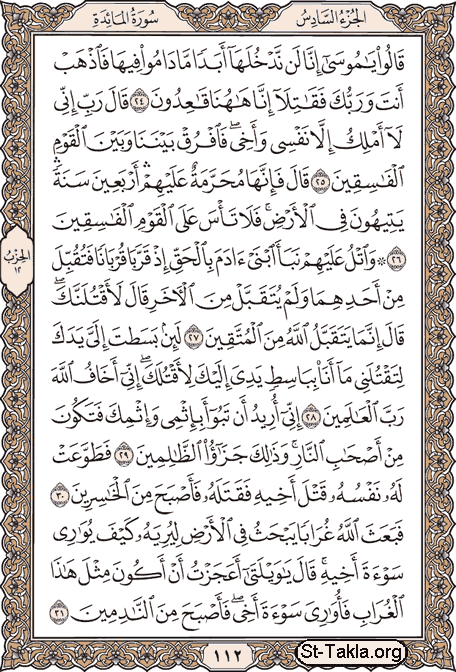 الجُزْءُ السَّادِسُ
سُورَةُ المَائِدَةِ
قَالُوا۟ يَٰمُوسَىٰٓ إِنَّا لَن نَّدْخُلَهَآ أَبَدًا مَّا دَامُوا۟ فِيهَا فَٱذْهَبْ
أَنتَ وَرَبُّكَ فَقَٰتِلَآ إِنَّا هَٰهُنَا قَٰعِدُونَ ٢٤ قَالَ رَبِّ إِنِّى
لَآ أَمْلِكُ إِلَّا نَفْسِى وَأَخِى ۖ فَٱفْرُقْ بَيْنَنَا وَبَيْنَ ٱلْقَوْمِ
ٱلْفَٰسِقِينَ ٢٥ قَالَ فَإِنَّهَا مُحَرَّمَةٌ عَلَيْهِمْ ۛ أَرْبَعِينَ سَنَةً ۛ
يَتِيهُونَ فِى ٱلْأَرْضِ ۚ فَلَا تَأْسَ عَلَى ٱلْقَوْمِ ٱلْفَٰسِقِينَ
٢٦ ۞ وَٱتْلُ عَلَيْهِمْ نَبَأَ ٱبْنَىْ ءَادَمَ بِٱلْحَقِّ إِذْ قَرَّبَا قُرْبَانًا فَتُقُبِّلَ
مِنْ أَحَدِهِمَا وَلَمْ يُتَقَبَّلْ مِنَ ٱلْءَاخَرِ قَالَ لَأَقْتُلَنَّكَ ۖ
قَالَ إِنَّمَا يَتَقَبَّلُ ٱللَّهُ مِنَ ٱلْمُتَّقِينَ ٢٧ لَئِنۢ بَسَطتَ إِلَىَّ يَدَكَ
لِتَقْتُلَنِى مَآ أَنَا۠ بِبَاسِطٍ يَدِىَ إِلَيْكَ لِأَقْتُلَكَ ۖ إِنِّىٓ أَخَافُ ٱللَّهَ
رَبَّ ٱلْعَٰلَمِينَ ٢٨ إِنِّىٓ أُرِيدُ أَن تَبُوٓأَ بِإِثْمِى وَإِثْمِكَ فَتَكُونَ
مِنْ أَصْحَٰبِ ٱلنَّارِ ۚ وَذَٰلِكَ جَزَٰٓؤُا۟ ٱلظَّٰلِمِينَ ٢٩ فَطَوَّعَتْ
لَهُۥ نَفْسُهُۥ قَتْلَ أَخِيهِ فَقَتَلَهُۥ فَأَصْبَحَ مِنَ ٱلْخَٰسِرِينَ ٣٠
فَبَعَثَ ٱللَّهُ غُرَابًا يَبْحَثُ فِى ٱلْأَرْضِ لِيُرِيَهُۥ كَيْفَ يُوَٰرِى
سَوْءَةَ أَخِيهِ ۚ قَالَ يَٰوَيْلَتَىٰٓ أَعَجَزْتُ أَنْ أَكُونَ مِثْلَ هَٰذَا
ٱلْغُرَابِ فَأُوَٰرِىَ سَوْءَةَ أَخِى ۖ فَأَصْبَحَ مِنَ ٱلنَّٰدِمِينَ ٣١
الحِزْبُ
١٢
١١٢
St-Takla.org